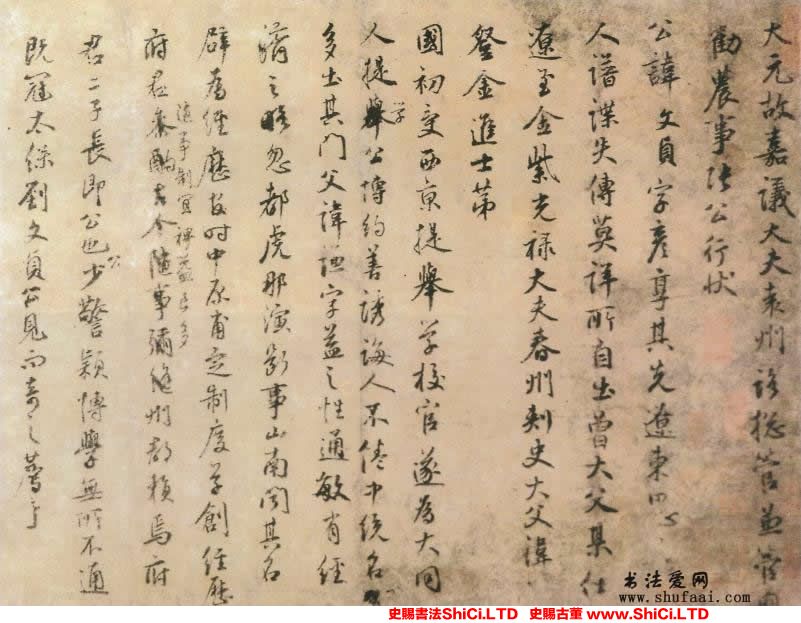 大元故嘉議大夫袁州路揔管兼管內
勸農事張公行狀
公諱文貞字彥享其先遼東
人譜諜失傳莫詳所自出曾大父某仕
遼至金紫光祿大夫春州刺史大父諱
登金進士第
國初受西京提舉学校官遂為大同
人提舉学公博約善誘誨人不倦中統名
多出其門父諱 字益之性通敏有經
濟之略忽都虎那演斷事山南聞其名
辟為經歷故时中原甫定制度草創經歷
府君参酌古今随事彌縫州郡賴焉府
随事制宜裨益良多
君二子長即公也公少警穎博學無所不通
既冠太保劉文貞公見而奇之薦于
书法爱网
www.shufaai.com
史賜書法ShiCi.LTD 史賜古董 www.ShiCi.LTD